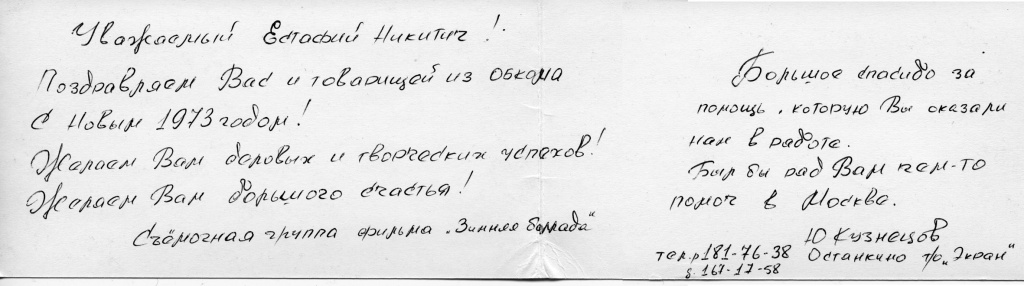 Уважаемый Естафий Никитич!
Поздравляем Вас и товарищей из обкома
С Новым 1973 годом!
Желаем Вам деловых и творческих успехов!
Желаем Вам большого счастья!
Съёмочная группа фильма „Зимняя баллада"
Большое спасибо за
помощь, которую Вы оказали
нам в работе.
Был бы рад Вам чем-то
помоч в Москве.
Ю Кузнецов
тел.р 181-76-38 Останкино т/о „Экран"
д. 167-17-58